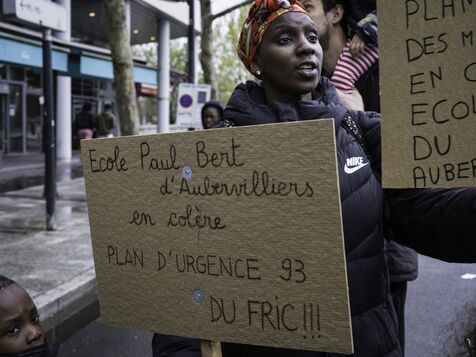 Ecole Paul Bert
d'Aubervilliers
en colère
PLAN D'URGENCE 93
DU FRIC !!!
PLAN
DES M
EN C
ECOL
DU
AUBER
NIKE